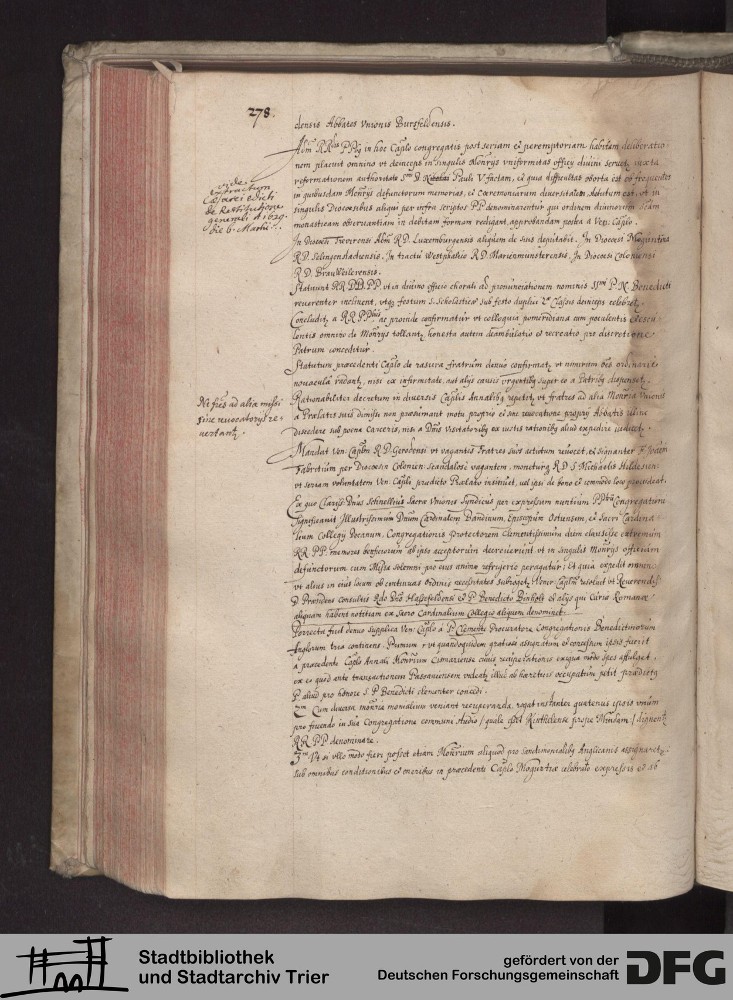 278.
densis Abbates Vnionis Bursfeldensis.
in hoc Caplo congregatis post seriam et peremptoriam habitam deliberatio-
nem placuit omnino vt deinceps in singulis Monrijs vniformitas officij diuini seruetur iuxta
reformationem authoritate Pauli V. factam, et quia difficultas oborta est ob frequentes
in quibusdam Monrijs defunctorum memorias, et Cæremoniarum diuersitatem statutum est, vt in
singulis Dioecesibus aliqui per infra scriptos PP. denominarentur qui ordinem diuinorum
monasticam obseruantiam in debitam formam redigant, approbandam postea a Ven. Caplo.
In Dioecesi Treuirensi R.D. Luxemburgensis aliquem de suis deputabit. In Dioecesi Moguntina
R.D. Selingenstadiensis. In tractu Westphaliæ R.D. Marienmunsterensis. In Dioecesi Coloniensi
R.D. Brauweilerensis.
Statuunt RR.DD.PP. vt in diuino officio chorali ad pronunciationem nominis SSmi P.N. Benedicti
reuerenter inclinent, vtque festum S. Scholasticæ sub festo duplici 2æ Classis deinceps celebretur.
Concluditur a ac proinde confirmatur vt colloquia pomeridiana cum poculentis et escu-
lentis omnino de Monrijs tollantur, honesta autem deambulatio et recreatio pro discretione
Patrum conceditur.
Statutum præcedenti Caplo de rasura fratrum denuo confirmatur vt nimirum
nouacula radantur, nisi ex infirmitate, aut alijs causis vrgentibus super eo a Patribus dispensetur.
Rationabiliter decretum in diuersis Caplis Annalibus repetitur vt fratres ad alia Monria Vnionis
a Prælatis suis dimissi non præsumant motu proprio et sine reuocatione proprij Abbatis illinc
discedere sub poena Carceris, nisi a Dnis Visitatoribus ex iustis rationibus aliud expedire iudicetur.
Mandat Ven. Caplm R.D. Gerodensi vt vagantes Fratres suos actutum reuocet, et signanter F.
Fabretium per Dioecesin Colonien: scandalose vagantem, R.D. S. Michaelis Hildesien:
vt seriam voluntatem Ven. Capli prædicto Prælato insinuet, vel ipsi de bono et commodo loco prouideat.
Ex quo Clariss. Dnus Schnellius Sacræ Vnionis Syndicus per expressum nuntium Congregationi
significauit Illustrissimum Dnum Cardinalem Bandinum, Episcopum Ostiensem, et Sacri Cardina-
lium Collegij Decanum, Congregationis Protectorem Clementissimum diem clausisse extremum
RR.PP. memores beneficiorum ab ipso acceptorum decreuerunt vt in singulis Monrijs officium
defunctorum cum Missa solemni pro eius animæ refrigerio peragatur; Et quia expedit omnino
vt alius in eius locum ob continuas Ordinis necessitates subrogetur, Vener. Caplm resoluit vt Reuerendiss.
D. Præsidens consultis Rdo Dno Hassefeldensi et P. Benedicto et alijs qui Curiæ Romanæ
aliquam habent notitiam ex Sacro Cardinalium Collegio aliquem denominet.
Porrecta fuit denuo supplica Ven. Caplo a P. Clemente Procuratore Congregationis Benedictinorum
Anglorum tria continens. Primum, vt quandoquidem gratiose assignatum et concessum ipsis fuerit
a præcedente Caplo Annali Monrium Cismariense cuius recuperationis exigua modo spes affulget,
ex eo quod ante transactionem Passauensem videatur illud ab hæreticis occupatum, petit prædictus
P. aliud pro honore S.P. Benedicti clementer concedi.
2m Cum diuersa monria monialium veniant recuperanda, rogat instanter quatenus ipsis vnum
pro fouendo in sua Congregatione communi studio, quale esset Rinthelense prope Mindam, dignentur
RR.PP. denominare.
3m Vt si vllo modo fieri posset etiam Monrium aliquod pro Sanctimonialibus Anglicanis assignaretur,
sub omnibus conditionibus et oneribus in præcedenti Caplo Moguntiæ celebrato expressis et ab
vide
extractum
Cæsarei edicti
de Restitutione
generali A. 1629.
die 6. Martij.
Ne fres ad alia missi
sine reuocatorijs re-
uertantur.
Stadtbibliothek
und Stadtarchiv Trier
gefördert von der
Deutschen Forschungsgemeinschaft
DFG